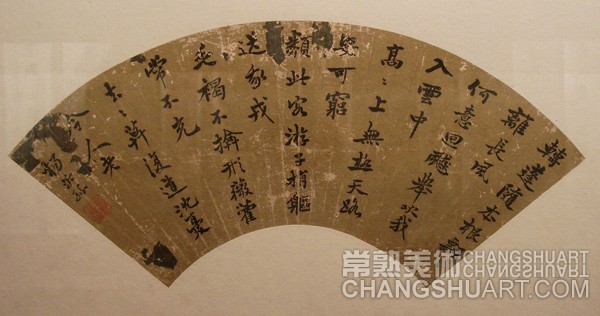 轉蓬随本根
離長風
何意回飈舉吹我
入雲中
高〻上無極天路
安可窮
類此客游子捐軀
從戎
毛褐不掩形薇藿
常不充
去〻莫復道沈憂
令人老
楊
常熟美術
CHANGSHUART
CHANGSHUART
CHANGSHUART.COM